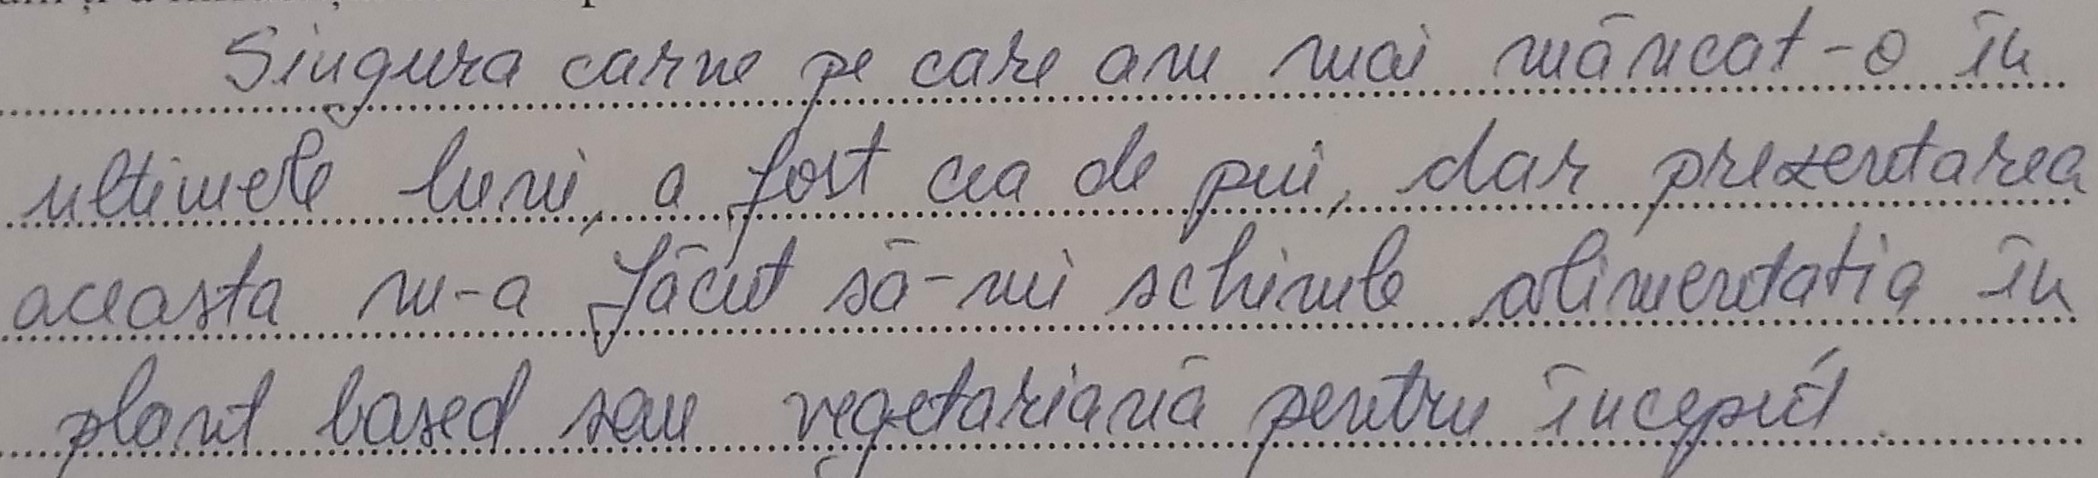 Singura carne pe care am mai mâncat-o în
ultimele luni, a fost cea de pui, dar prezentarea
aceasta m-a făcut să-mi schimb alimentatia în
plant based sau vegetariană pentru început